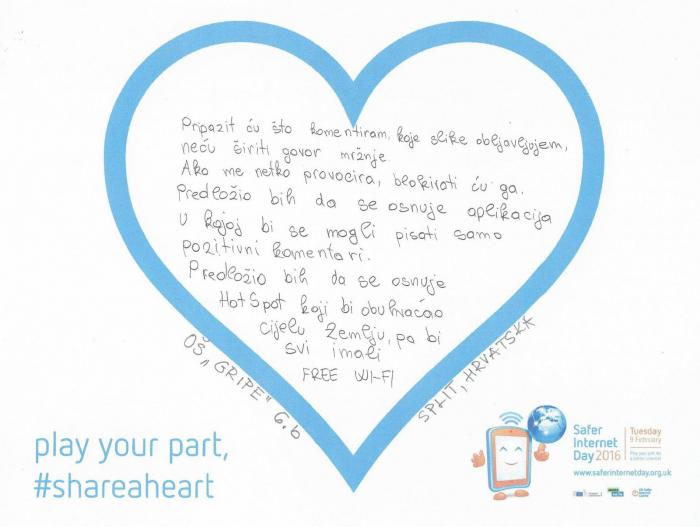 Pripazit ću što komentiram, koje slike objavljujem,
neću širiti govor mržnje.
Ako me netko provocira, blokirati ću ga.
Predložio bih da se osnuje aplikacija
u kojoj bi se mogli pisati samo
pozitivni komentari.
Predložio bih da se osnuje
HotSpot koji bi obuhvaćao
cijelu Zemlju, pa bi
svi imali
FREE WI-FI
OŠ „GRIPE" 6.b
SPLIT, HRVATSKA
play your part,
#shareaheart
Safer
Internet
Day 2016
Tuesday
9 February
Play your part for
a better internet!
www.saferinternetday.org.uk